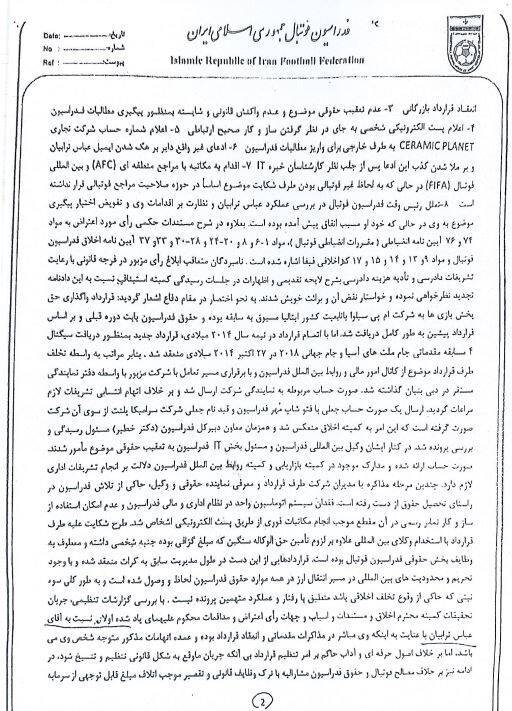 فدراسیون فوتبال جمهوری اسلامی ایران
Islamic Republic of Iran Football Federation
تاریخ: Date:
شماره: No :
پیوست: Ref :
انعقاد قرارداد بازرگانی ۳- عدم تعقیب حقوقی موضوع و عدم واکنش قانونی و شایسته بمنظور پیگیری مطالبات فدراسیون
۴- اعلام پست الکترونیکی شخصی به جای در نظر گرفتن ساز و کار صحیح ارتباطی ۵- اعلام شماره حساب شرکت تجاری
CERAMIC PLANET به طرف خارجی برای واریز مطالبات فدراسیون ۶- ادعای غیر واقع دایر بر هک شدن ایمیل عباس ترابیان
و بر ملا شدن کذب این ادعا پس از جلب نظر کارشناسان خبره IT ۷- اقدام به مکاتبه با مراجع منطقه ای (AFC) و بین المللی
فوتبال (FIFA) در حالی که به لحاظ غیر فوتبالی بودن طرف شکایت موضوع اساساً در حوزه صلاحیت مراجع فوتبالی قرار نداشته
است ۸- رئیس وقت فدراسیون فوتبال در بررسی عملکرد عباس ترابیان و نظارت بر اقدامات وی و تفویض اختیار پیگیری
موضوع به وی در حالی که خود او مسبب اتفاق پیش آمده بوده است. بعلاوه در شرح مستندات حکمی رأی مورد اعتراض به مواد
۷۴ و ۷۶ آیین نامه انضباطی (مقررات انضباطی فوتبال)، مواد ۱-۶ و ۸ و ۲۰-۲۴ و ۲۸-۳۰ و ۳۳ و ۳۷ آیین نامه اخلاق فدراسیون
فوتبال و مواد ۹ و ۱۳ و ۱۴ و ۱۵ و ۱۷ کد اخلاقی فیفا اشاره شده است. نامبردگان متعاقب ابلاغ رأی مزبور در فرجه قانونی با رعایت
تشریفات دادرسی و تأدیه هزینه دادرسی بشرح لایحه تقدیمی و اظهارات در جلسات رسیدگی کمیته استیناف نسبت به این دادنامه
تجدید نظرخواهی نموده و خواستار نقض آن و برائت خویش شدند. به نحو اختصار در مقام دفاع اشعار گردید: قرارداد واگذاری حق
پخش بازی ها به شرکت ام پی سیلوا باتابعیت کشور ایتالیا مسبوق به سابقه بوده و حقوق فدراسیون بابت دوره قبلی و بر اساس
قرارداد پیشین به طور کامل دریافت شد. اما با اتمام قرارداد در نیمه سال ۲۰۱۴ میلادی، قرارداد جدید بمنظور دریافت سیگنال
۴ مسابقه مقدماتی جام ملت های آسیا و جام جهانی ۲۰۱۸ در ۲۷ اکتبر ۲۰۱۴ میلادی منعقد شد. بنابر مراتب به واسطه تخلف
طرف قرارداد موضوع از کانال امور مالی و روابط بین الملل فدراسیون و با برقراری مسیر تعامل با شرکت مزبور با واسطه دفتر نمایندگی
مستقر در دبی بنیان گذاشته شد. صورت حساب مربوطه به نمایندگی شرکت ارسال شد و بر خلاف اتهام انتسابی تشریفات لازم
مراعات گردید. ارسال یک صورت حساب جعلی با فتو شاپ مُهر فدراسیون و قید نام جعلی شرکت سرامیکا پلنت از سوی آن شرکت
صورت گرفته است که این امر به کمیته اخلاق منعکس شد و همزمان معاون دبیرکل فدراسیون (دکتر خطیر) مسئول رسیدگی و
بررسی پرونده شد. در کنار ایشان وکیل بین المللی فدراسیون و مسئول بخش IT فدراسیون به تعقیب حقوقی موضوع مأمور شدند.
صورت حساب ارائه شده و مدارک موجود در کمیته بازاریابی و کمیته روابط بین الملل فدراسیون دلالت بر انجام تشریفات اداری
لازم دارد. چندین مرحله مذاکره با مدیران شرکت طرف قرارداد و معرفی نماینده حقوقی و وکیل، حاکی از تلاش فدراسیون در
راستای تحصیل حقوق از دست رفته است. فقدان سیستم اتوماسیون واحد در نظام اداری و مالی فدراسیون و عدم امکان استفاده از
ساز و کار نمابر رسمی در آن مقطع موجب انجام مکاتبات فوری از طریق پست الکترونیکی اشخاص شد. طرح شکایت علیه طرف
قرارداد با استخدام وکلای بین المللی علاوه بر لزوم تأمین حق الوکاله سنگین که مبلغ گزافی بوده جنبه شخصی داشته و معطوف به
وظایف بخش حقوقی فدراسیون فوتبال بوده است. قراردادهایی از این دست در طول مدیریت سابق به کرات منعقد شده و با وجود
تحریم و محدودیت های بین المللی در مسیر انتقال ارز در همه موارد حقوق فدراسیون لحاظ و وصول شده است و به طور کلی سوء
نیتی که حاکی از وقوع تخلف اخلاقی باشد منطبق با رفتار و عملکرد متهمین پرونده نیست. با بررسی گزارشات تنظیمی، جریان
تحقیقات کمیته محترم اخلاق و مستندات و اسباب و جهات رأی اعتراض و مدافعات محکوم علیهمای یاد شده اولاً، نسبت به آقای
عباس ترابیان با عنایت به اینکه وی مباشر در مذاکرات مقدماتی و انعقاد قرارداد بوده و عمده اتهامات مذکور متوجه شخص وی می
باشد، اما بر خلاف اصول حرفه ای و آداب حاکم بر امر تنظیم قرارداد بی آنکه جریان ماوقع به شکل قانونی تنظیم و تنسیخ شود، در
ادامه نیز بر خلاف مصالح فوتبال و حقوق فدراسیون مشارالیه با ترک وظایف قانونی و تقصیر موجب اتلاف مبلغ قابل توجهی از سرمایه
2